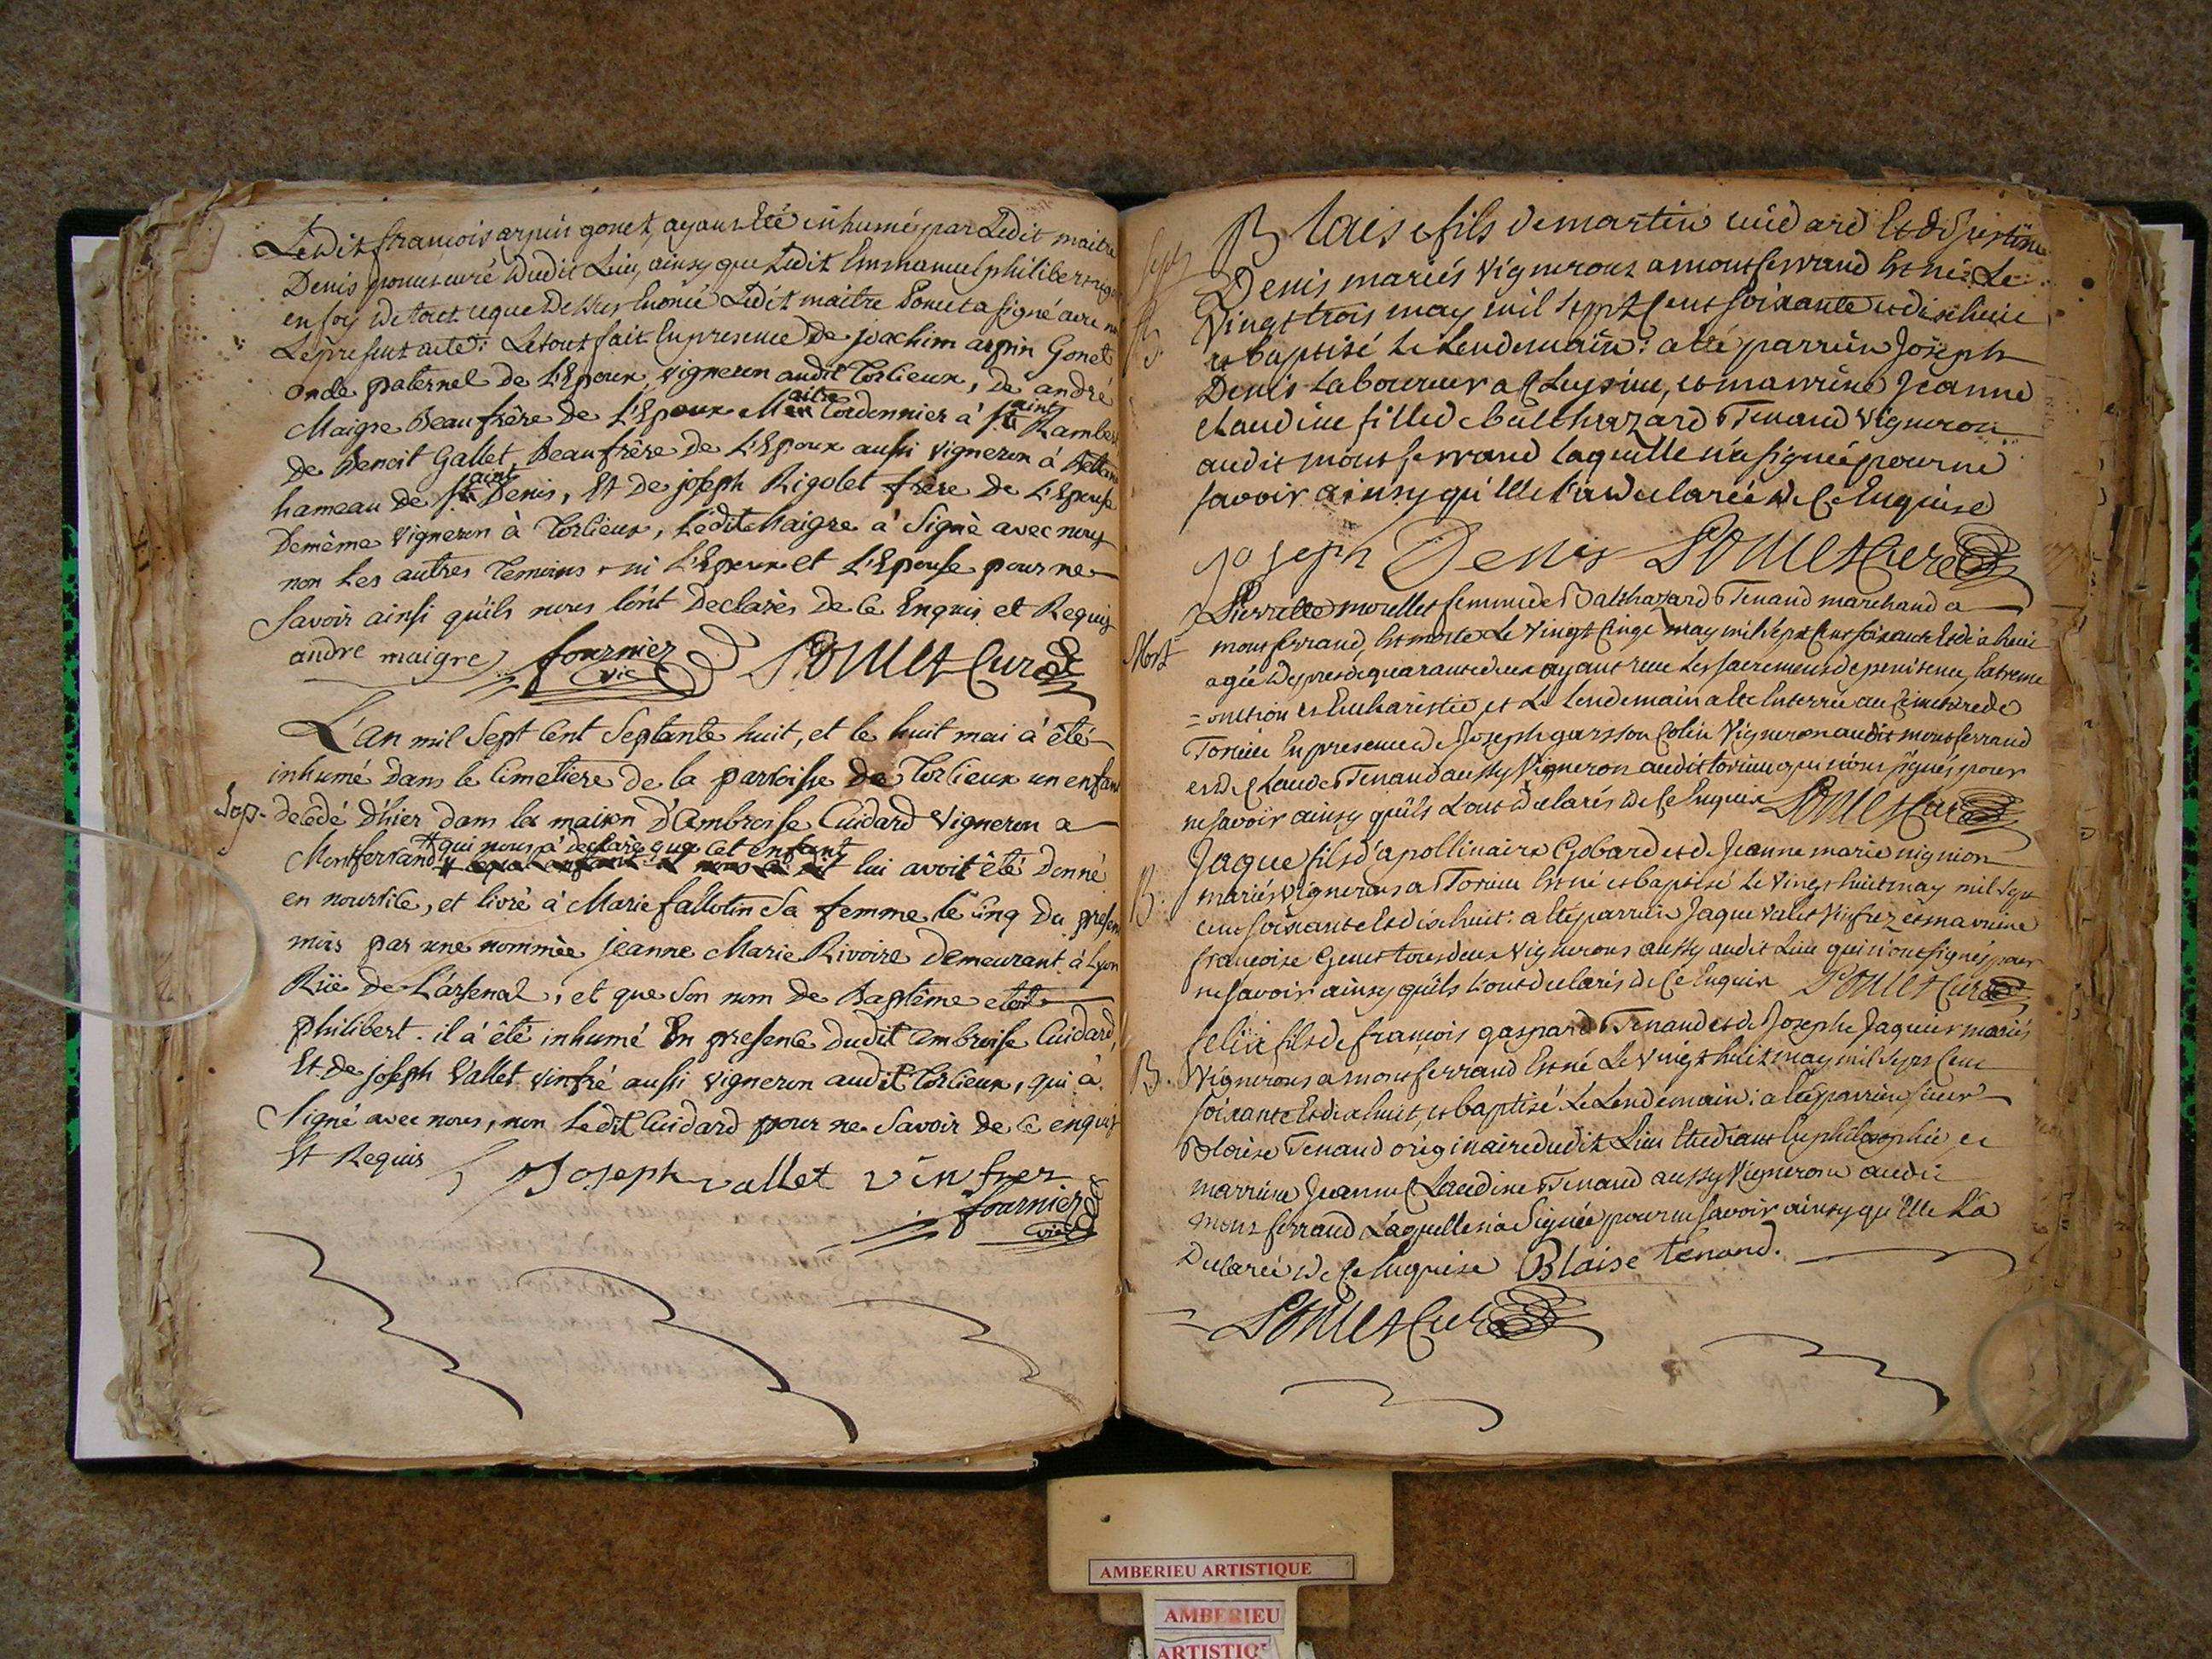 Ledit françois arpin gonet, ayant eté inhumé par Ledit maitre
Denis ponceuré dudit Lieu, ainsy que Ledit Emmanuel philibert
en foy de tout ceque dessus Enoncé Ledit maitre Pomet a signé avec
Le present acte: Le tout fait En presence de joachim arpin Gonet
oncle paternel de L'Epoux, vigneron audit Torcieux, de andré
Maigre Beaufrère de L'Epoux Maitre Cordonnier à Saint Rambert
de Benoit Gallet Beaufrère de L'Epoux aussi vigneron à
hameau de Saint Denis, Et de joseph Rigolet frère de L'Epouse
Demême vigneron à Torcieux, Ledit Maigre a Signé avec nous
non Les autres Temoins ni L'Epoux et L'Epouse pour ne
Savoir ainsi qu'ils nous l'ont Declarés de ce Enquis et Requis
andre maigre fournier vic Pomet Curé
L'an mil Sept Cent Septante huit, et le huit mai a été
inhumé Dans le Cimetiere de la parroisse de Torcieux un enfant
Sep. decedé D'hier dans la maison D'Ambroise Cuidard Vigneron a
qui nous a declaré que Cet enfant
Montferrand lui avoit été Donné
en nourrice, et livré à Marie fallotin Sa femme le cinq Du present
mois par une nommée jeanne Marie Rivoire Demeurant à Lyon
Rüe De L'arsenal, et que Son nom de Baptême etoit
Philibert. il a été inhumé En presence dudit Ambroise Cuidard,
Et de joseph Vallet vinfré aussi vigneron audit Torcieux, qui a
Signé avec nous, non Ledit Cuidard pour ne Savoir de ce enquis
Et Requis Joseph vallet vinfrer
fournier
vic
Sept
Blaise fils de martin cuidard Et de
Denis mariés Vignerons a montferrand Est né Le
B. Vingt trois may mil sept Cent soixante et dix huit
et baptisé Le Lendemain: a eté parrain Joseph
Denis Laboureur a Cleyzieu, et marraine Jeanne
claudine fille de balthazard Tenand Vigneron
audit montferrand Laquelle n'a signée pour ne
savoir ainsy qu'elle l'a declarée de Ce Enquise
joseph Denis Pomet Curé
Pierrette morellet femme de Balthazard Tenand marchand a
Mort montferrand, Est morte Le Vingt Cinq may mil sept Cent soixante Et dix huit
agée de pres de quarante deux ayant recu Les sacremens de penitence, Extreme
= onction et Eucharistie et Le Lendemain a eté Enterrée au Cimetiere de
Torcieu En presence de Joseph garsson Colin Vigneron audit montferrand
et de Claude Tenand aussy Vigneron audit torcieu qui n'ont signés pour
ne savoir ainsy qu'ils L'ont declarés de Ce Enquis Pomet Curé
Jaque fils d'apollinaire Gobard et de Jeanne marie mignion
B. mariés Vignerons a Torcieu Est né et baptisé Le Vingt huit may mil sept
cent soixante Et dix huit: a eté parrain Jaque Valet Vinfrez et marraine
françoise Genet tous deux Vignerons aussy audit Lieu qui n'ont signés pour
ne savoir ainsy qu'ils L'ont declarés de Ce Enquis Pomet Curé
felix fils de françois gaspard Tenand et de Josephe Jaquier mariés
B. Vignerons a montferrand Est né Le Vingt huit may mil sept Cent
soixante Et dix huit, et baptisé Le Lendemain: a eté parrain sieur
Blaise Tenand originaire dudit Lieu Etudiant En philosophie, et
marraine Jeanne Claudine Tenand aussy Vigneronne audit
montferrand Laquelle n'a Signée pour ne savoir ainsy qu'elle L'a
Declarée de Ce Enquise Blaise tenand.
Pomet Curé
AMBERIEU ARTISTIQUE
AMBERIEU
ARTISTIQ